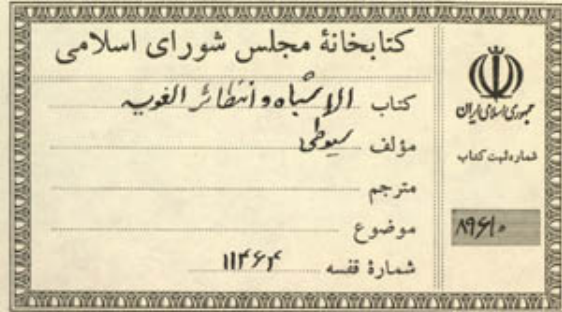 کتابخانهٔ مجلس شورای اسلامی
کتاب الاشباه و النظائر النحویه
مؤلف سیوطی
مترجم
موضوع
شمارهٔ قفسه ۱۱۴۶۴
جمهوری اسلامی ایران
شماره ثبت کتاب
۸۹۶۱۰